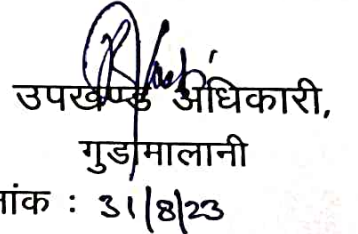 उपखण्ड अधिकारी,
गुडामालानी
नांक : 31/8/23